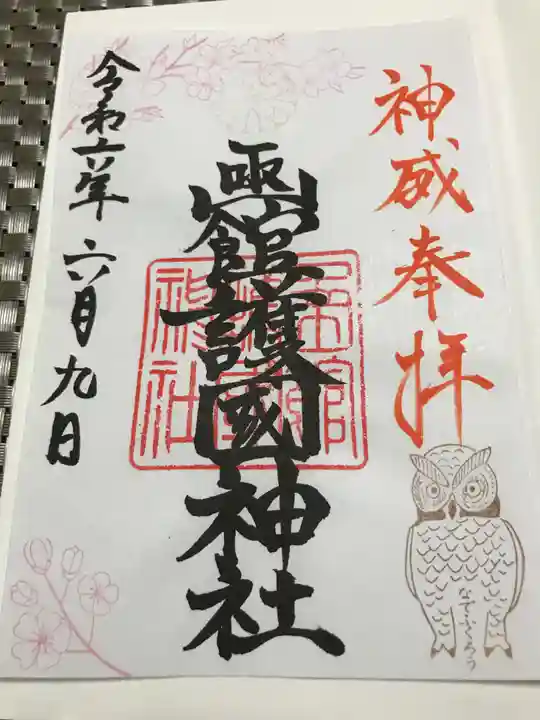 神威奉拝
函館護國神社
令和六年 六月九日
なでふくろう